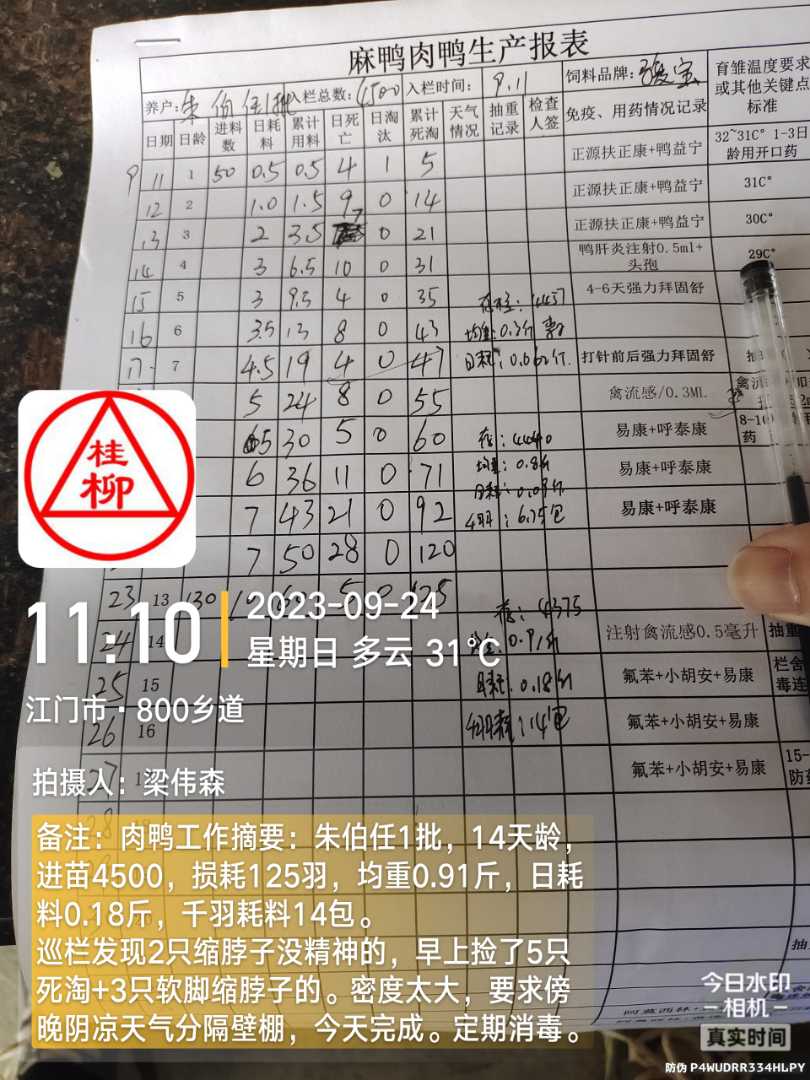 麻鸭肉鸭生产报表
养户: 朱伯任1批 入栏总数: 4500 入栏时间: 9.11 饲料品牌:
育雏温度要求或其他关键点标准
日期 日龄 进料数 日耗料 累计用料 日死亡 日淘汰 累计死淘 天气情况 抽重记录 检查人签 免疫、用药情况记录
9 11 1 50 0.5 0.5 4 1 5 正源扶正康+鸭益宁 32~31C° 1-3日龄用开口药
12 2 1.0 1.5 9 0 14 正源扶正康+鸭益宁 31C°
13 3 2 3.5 7 0 21 正源扶正康+鸭益宁 30C°
14 4 3 6.5 10 0 31 鸭肝炎注射0.5ml+头孢 29C°
15 5 3 9.5 4 0 35 4-6天强力拜固舒
16 6 3.5 13 8 0 43 均重:0.3斤
17 7 4.5 19 4 0 47 日耗:0.062斤 打针前后强力拜固舒
5 24 8 0 55 禽流感/0.3ML
6.5 30 5 0 60 存:4440 易康+呼泰康
6 36 11 0 71 均重:0.8斤 易康+呼泰康
日耗:0.09斤
7 43 21 0 92 千羽:6.75包 易康+呼泰康
7 50 28 0 120
23 13 130 10 60 5 0 125 存:4375
24 14 0.91斤 注射禽流感0.5毫升 抽重
25 15 日耗:0.18斤 氟苯+小胡安+易康
26 16 千羽耗:14包 氟苯+小胡安+易康
27 氟苯+小胡安+易康
桂柳
11:10
2023-09-24
星期日 多云 31℃
江门市·800乡道
拍摄人：梁伟森
备注：肉鸭工作摘要：朱伯任1批，14天龄，
进苗4500，损耗125羽，均重0.91斤，日耗
料0.18斤，千羽耗料14包。
巡栏发现2只缩脖子没精神的，早上捡了5只
死淘+3只软脚缩脖子的。密度太大，要求傍
晚阴凉天气分隔壁棚，今天完成。定期消毒。
今日水印
相机
真实时间
防伪 P4WUDRR334HLPY